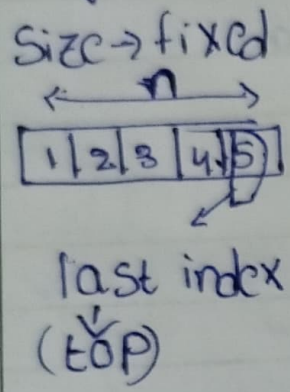 Size → fixed
n
1 | 2 | 3 | 4 | 5
last index
(top)